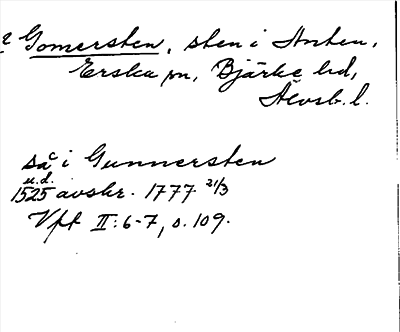 Gomersten, sten i Anten,
Erska sn, Bjärke hd,
Älvsb. l.
så i Gunnersten
u.d.
1525 avskr. 1777 21/3
Vft II:6-7, s. 109.